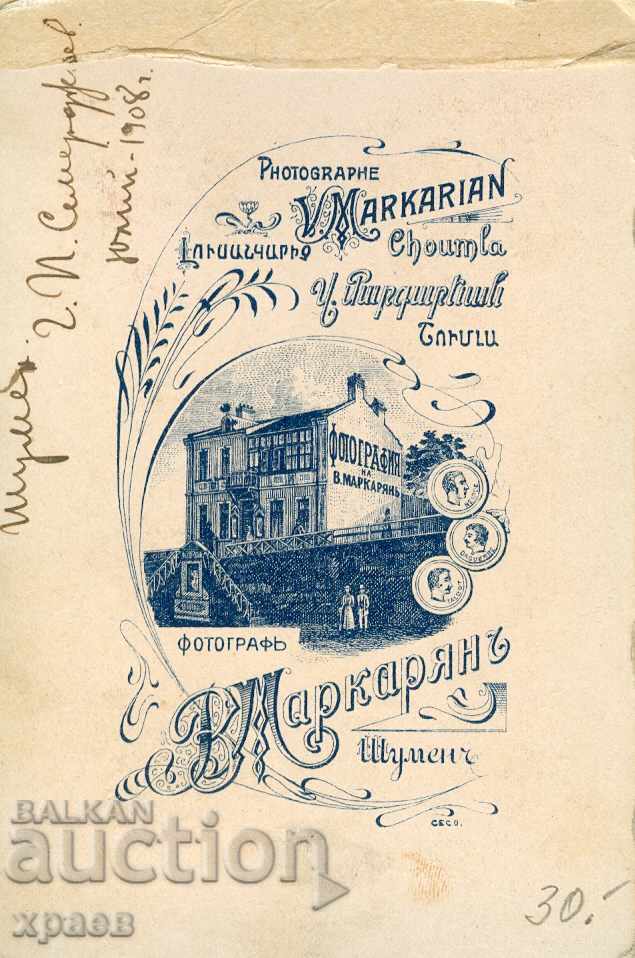 Шумен.
г. П. Семерджиев
юлий - 1908 г.
PHOTOGRAPHE
V. MARKARIAN
Լուսանկարիչ
Choumla
Վ. Մարգարեան
Շումլա
ФОТОГРАФИЯ
НА
В. МАРКАРЯНЪ
NIEPCE
DAGUERRE
TALBOT
ФОТОГРАФЪ
В. Маркарянъ
Шуменъ
CECO.
BALKAN
auction
храев
30.-